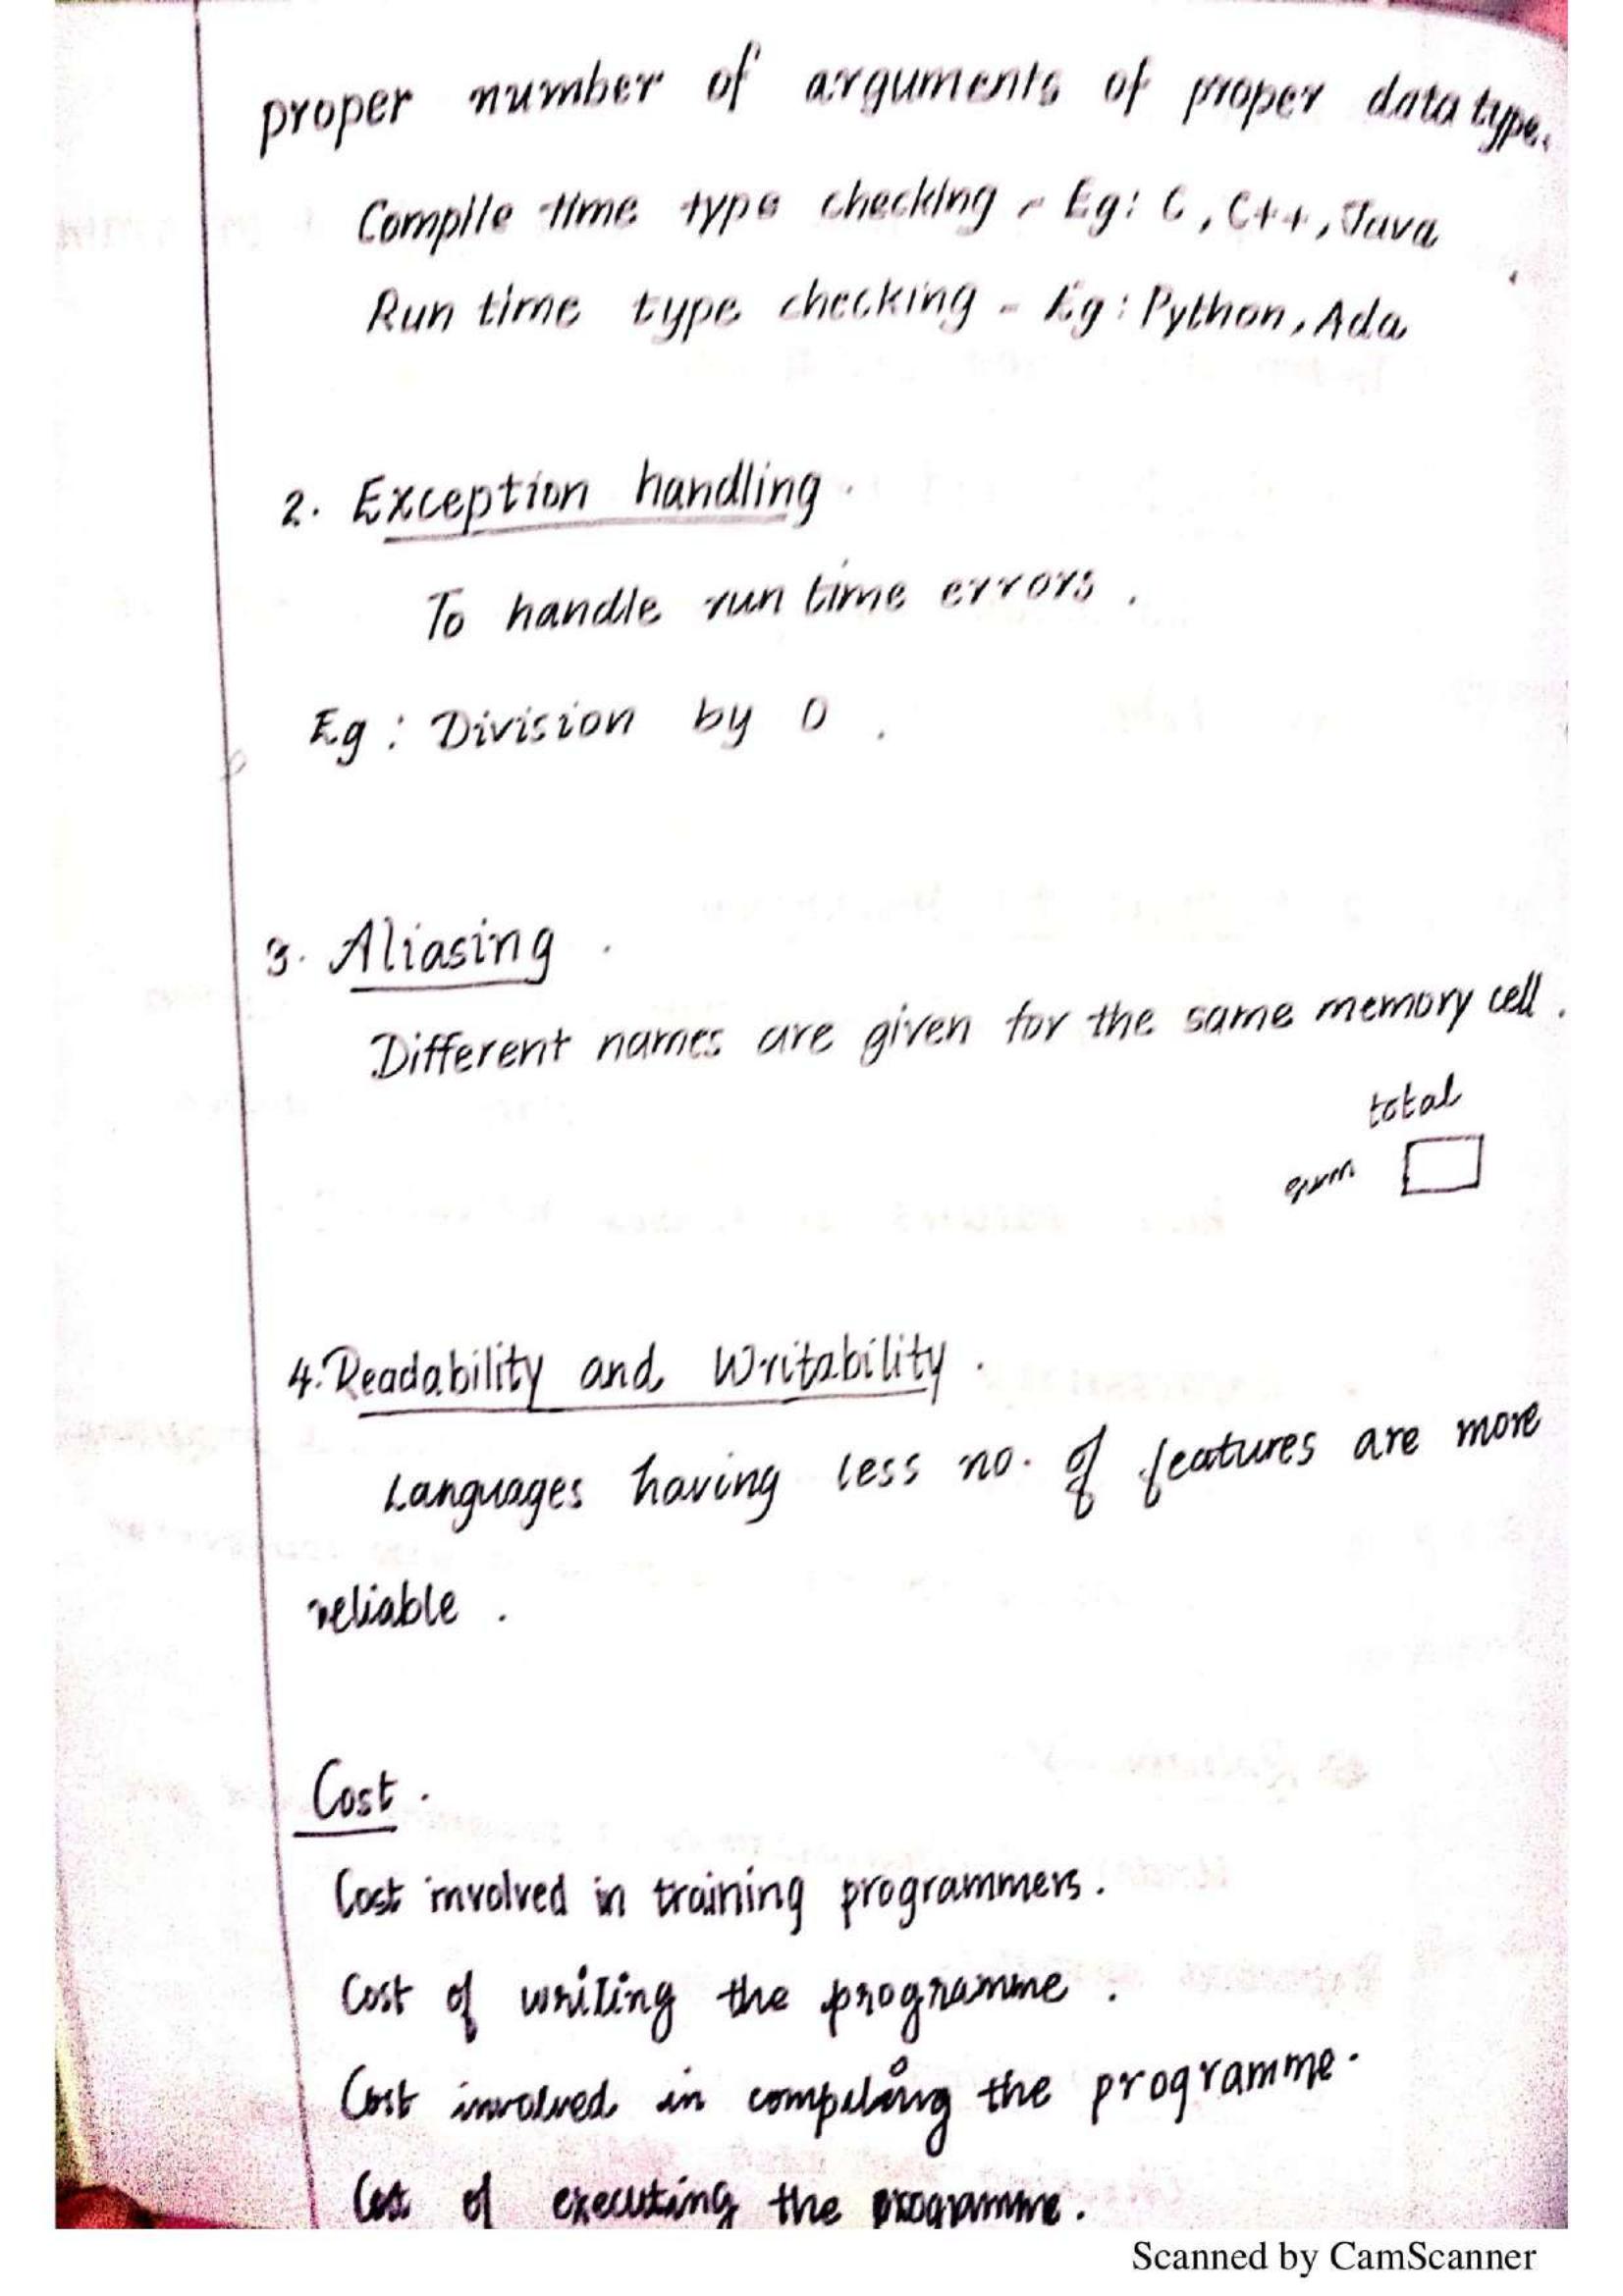 proper number of arguments of proper data type.
Compile time type checking - Eg: C, C++, Java
Run time type checking - Eg: Python, Ada
2. Exception handling.
To handle run time errors.
Eg: Division by 0.
3. Aliasing.
Different names are given for the same memory cell.
total
sum
4. Readability and Writability.
Languages having less no. of features are more
reliable.
Cost.
Cost involved in training programmers.
Cost of writing the programme.
Cost involved in compiling the programme.
Cost of executing the programme.
Scanned by CamScanner